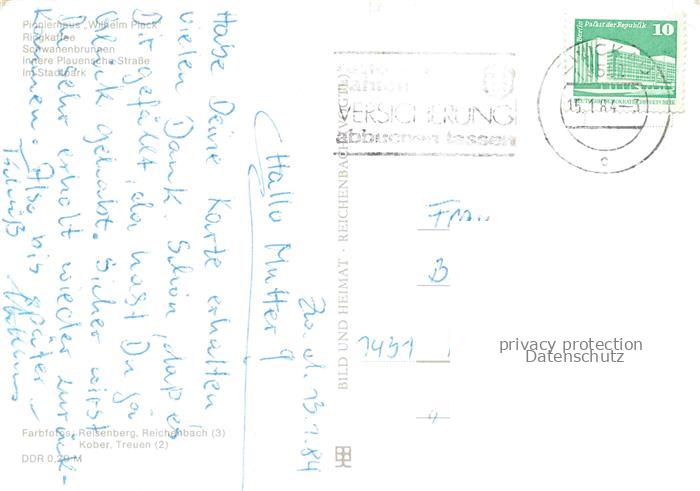 Pionierhaus "Wilhelm Pieck"
Ringkaffee
Schwanenbrunnen
Innere Plauensche Straße
Im Stadtpark
Zw. d. 13.1.84
Hallo Mutter!
Habe Deine Karte erhalten
vielen Dank. Schön, daß es
Dir gefällt, da hast Du ja
Glück gehabt. Sicher wirst
Du sehr erholt wieder zurück-
kommen. Also bis später
Tschüß
Farbfotos: Reisenberg, Reichenbach (3)
Kober, Treuen (2)
DDR 0,20 M
BILD UND HEIMAT · REICHENBACH (VOGTL)
VERSICHERUNG
abbuchen lassen
Berlin Palast der Republik
10
ZWICK
15.1.84
c
Frau
B
1431
privacy protection
Datenschutz